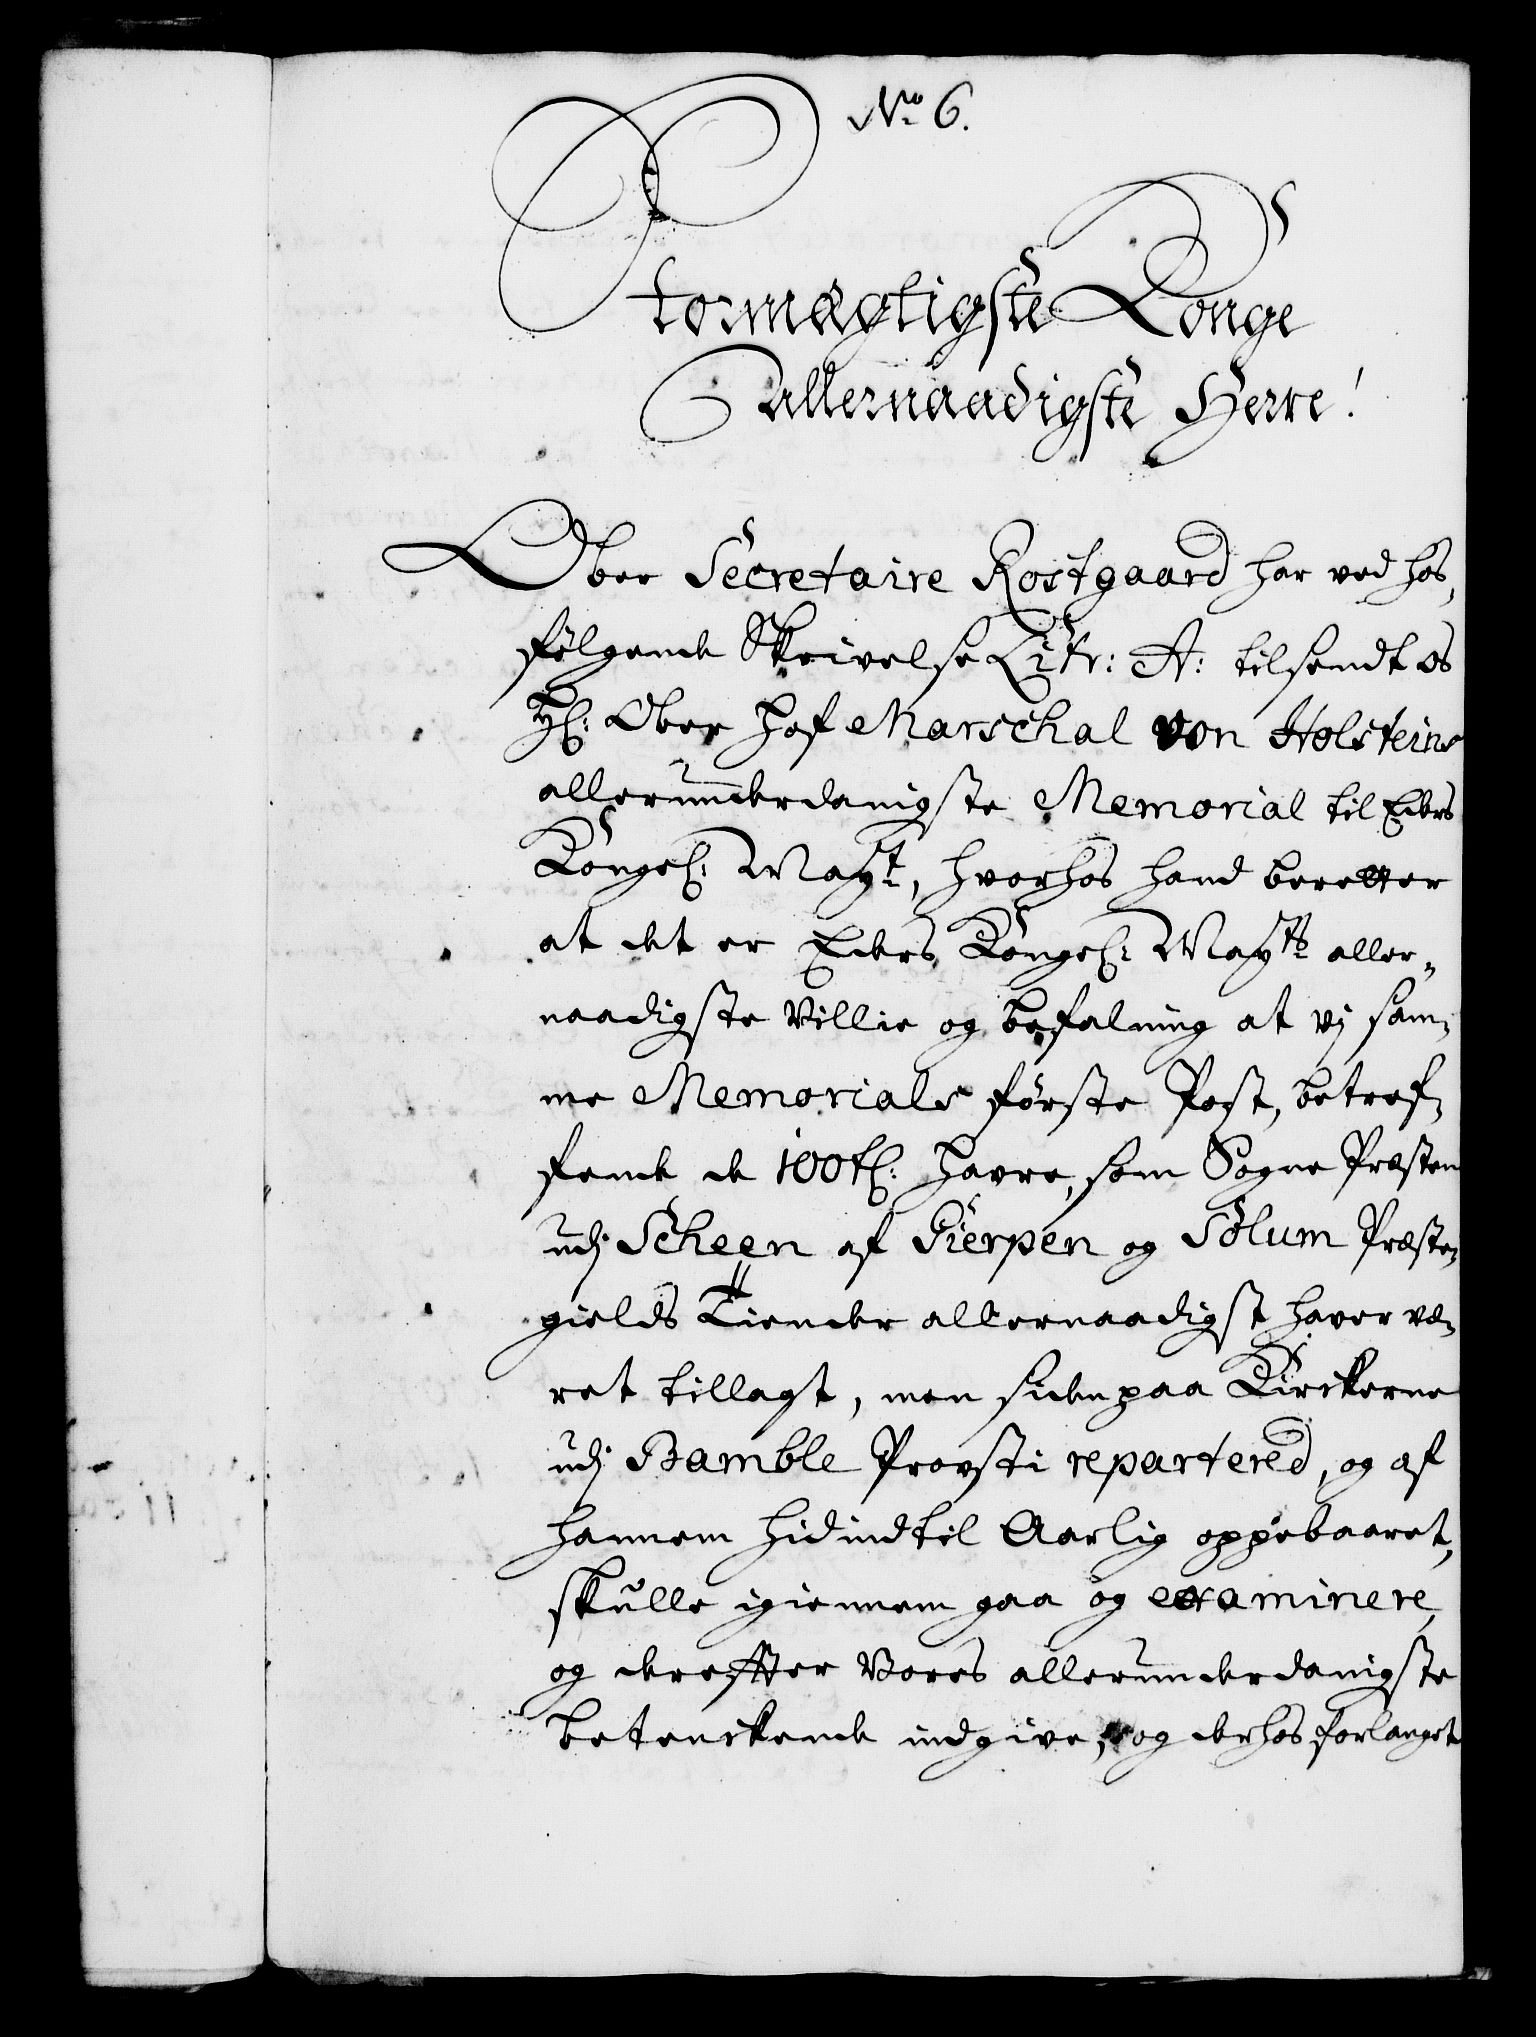 No 6.
Stormægtigste Konge
allernaadigste Herre!
Ober Secretaire Rostgaard har ved hos,
følgende Skrivelse Litr: A: tilsendt os
Hr: Ober Hof Marschal von Holsteins
allerunderdanigste Memorial til Eders
Kongel: Mayt, hvorhos hand beretter
at det er Eders Kongel: Mayts aller,,
naadigste Villie og befalning at vj sam,
me Memorials første Post, betref,
fende de 100 tl: Havre, som Sogne Præsten
udj Scheen af Gierpen og Solum Præste,
gields Tiender allernaadigst haver væ,
ret tillagt, men siden paa Kirckerne
udj Bamble Provsti repartered, og af
hannem hid indtil Aarlig oppebaaret,
skulle igiennem gaa og examinere,
og derefter Vores allerunderdanigste
betenckende indgive, og derhos forlanget